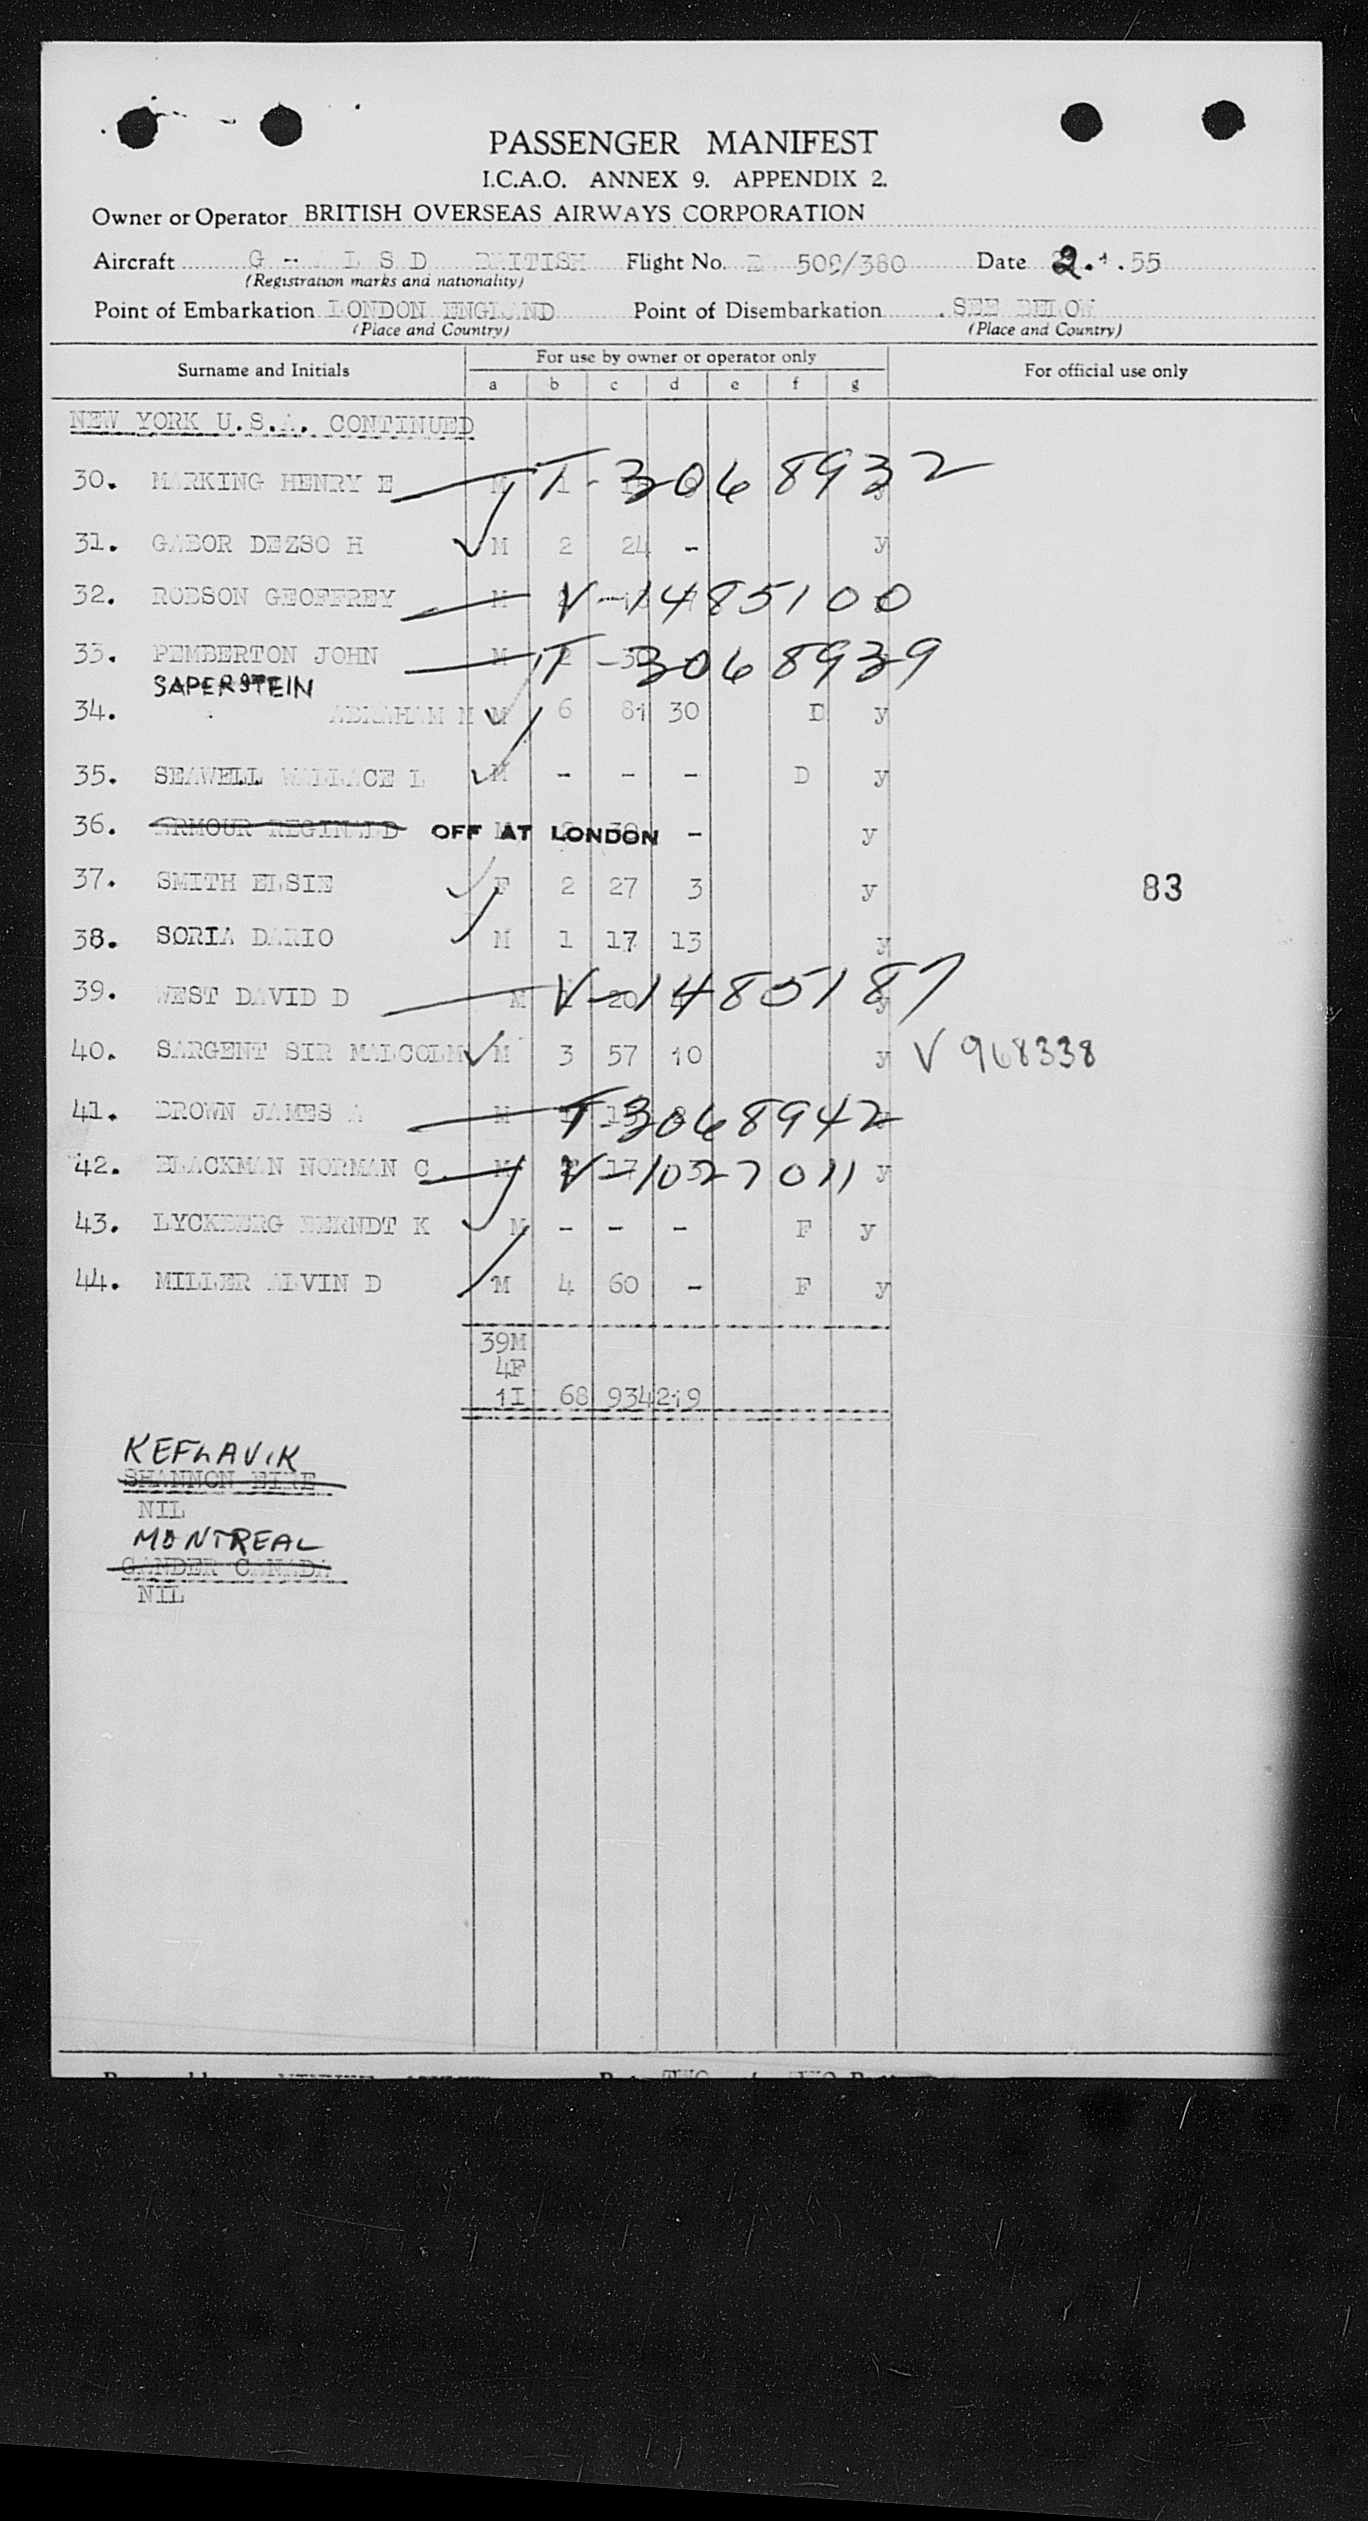 PASSENGER MANIFEST
I.C.A.O. ANNEX 9. APPENDIX 2.
Owner or Operator BRITISH OVERSEAS AIRWAYS CORPORATION
Aircraft G - L S D BRITISH Flight No. B 509/380 Date 2.1.55
(Registration marks and nationality)
Point of Embarkation LONDON ENGLAND Point of Disembarkation SEE BELOW
(Place and Country) (Place and Country)
Surname and Initials For use by owner or operator only For official use only
a b c d e f g
NEW YORK U.S.A. CONTINUED
30. MARKING HENRY E M T-3068932
31. GABOR DEZSO H M 2 24 - y
32. ROBSON GEOFFREY M V-1485100
33. PEMBERTON JOHN M T-3068939
SAPERSTEIN
34. ABRAHAM M M 6 81 30 D y
35. SEAWELL WALLACE L M - - - D y
36. ARMOUR REGINALD OFF AT LONDON - y
37. SMITH ELSIE F 2 27 3 y 83
38. SORIA DARIO M 1 17 13 y
39. WEST DAVID D M V-1485187 y
40. SARGENT SIR MALCOLM M 3 57 10 y V 968338
41. BROWN JAMES A M T-3068942
42. BLACKMAN NORMAN C M V-1027011 y
43. LYCKBERG BERNDT K M - - - F y
44. MILLER ALVIN D M 4 60 - F y
39M
4F
1I 68 934 219
KEFLAVIK
SHANNON EIRE
NIL
MONTREAL
GANDER CANADA
NIL